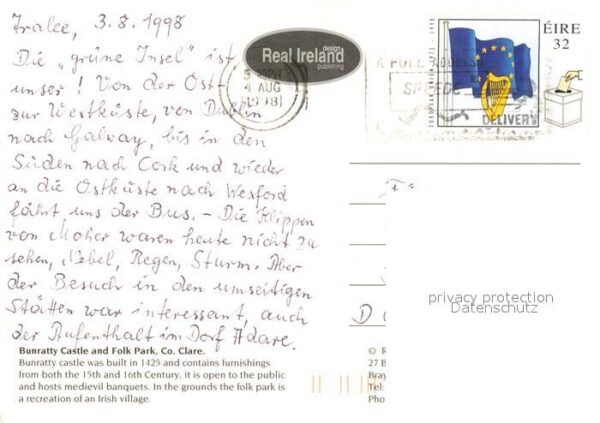 Tralee, 3.8.1998
Die „grüne Insel" ist
unser! Von der Ost-
zur Westküste, von Dublin
nach Galway, bis in den
Süden nach Cork und wieder
an die Ostküste nach Wexford
fährt uns der Bus. – Die Klippen
von Moher waren heute nicht zu
sehen, Nebel, Regen, Sturm. Aber
der Besuch in den umseitigen
Stätten war interessant, auch
der Aufenthalt im Dorf Adare.
Bunratty Castle and Folk Park, Co. Clare.
Bunratty castle was built in 1425 and contains furnishings
from both the 15th and 16th Century, it is open to the public
and hosts medievil banquets. In the grounds the folk park is
a recreation of an Irish village.
Real Ireland
design
publishing
4 AUG
1998
A FULL ADDRESS
SPEEDS
DELIVERY
ÉIRE
32
privacy protection
Datenschutz
D
© R
27 B
Bray
Tel:
Pho